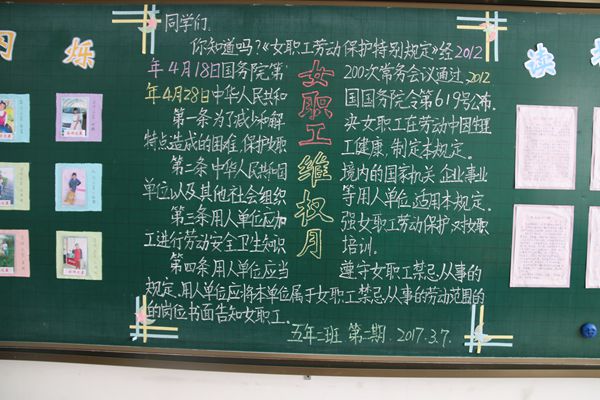 同学们.
你知道吗?《女职工劳动保护特别规定》经2012
年4月18日国务院第200次常务会议通过,2012
年4月28日中华人民共和国国务院令第619号公布.
第一条为了减少和解决女职工在劳动中因生理
特点造成的困难,保护女职工健康,制定本规定.
第二条中华人民共和国境内的国家机关、企业、事业
单位以及其他社会组织等用人单位,适用本规定.
第三条用人单位应加强女职工劳动保护,对女职
工进行劳动安全卫生知识培训.
第四条用人单位应当遵守女职工禁忌从事的
规定.用人单位应将本单位属于女职工禁忌从事的劳动范围的
的岗位书面告知女职工.
女职工维权月
五年二班 第二期.2017.3.7.
习
烁
读